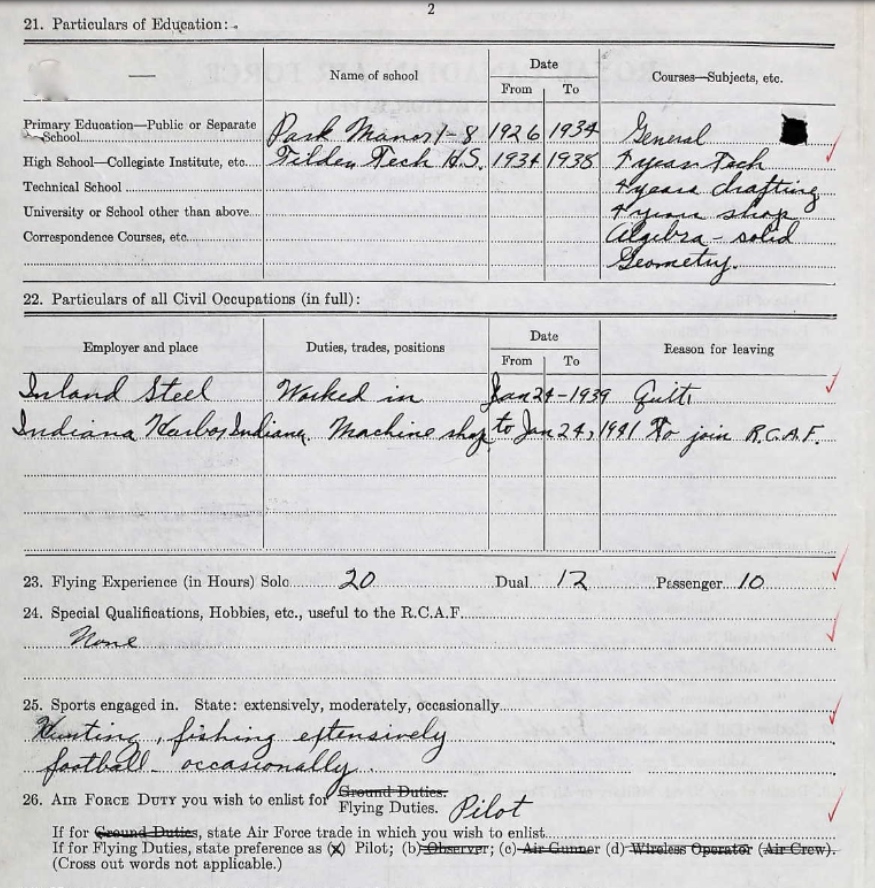 2
21. Particulars of Education:-
—
Name of school
Date
From To
Courses—Subjects, etc.
Primary Education—Public or Separate School Park Manor 1-8 1926 1934 General
High School—Collegiate Institute, etc. Tilden Tech H.S. 1934 1938 4 year Tech
Technical School 4 years drafting
University or School other than above 4 years shop
Correspondence Courses, etc. Algebra - solid
Geometry.
22. Particulars of all Civil Occupations (in full):
Employer and place
Duties, trades, positions
Date
From To
Reason for leaving
Inland Steel Worked in Jan 24-1939 Quit
Indiana Harbor, Indiana. Machine shop to Jan 24, 1941 To join R.C.A.F.
23. Flying Experience (in Hours) Solo 20 Dual 12 Passenger 10
24. Special Qualifications, Hobbies, etc., useful to the R.C.A.F.
None
25. Sports engaged in. State: extensively, moderately, occasionally
Hunting, fishing extensively
football - occasionally.
26. AIR FORCE DUTY you wish to enlist for Ground Duties.
Flying Duties. Pilot
If for Ground Duties, state Air Force trade in which you wish to enlist
If for Flying Duties, state preference as (x) Pilot; (b) Observer; (c) Air Gunner (d) Wireless Operator (Air Crew).
(Cross out words not applicable.)